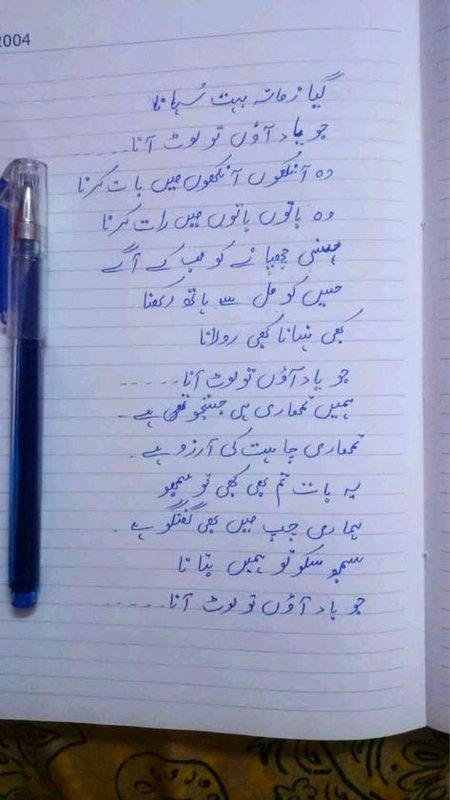 2004
گیا زمانہ بہت سُہانا
جو یاد آؤں تو لوٹ آنا.........
وہ آنکھوں آنکھوں میں بات کرنا
وہ باتوں باتوں میں رات کرنا
ہنسی چھپانے کو لب کے آگے
حسیں کو مل سے ہاتھ رکھنا
کبھی ہنسانا کبھی رولانا
جو یاد آؤں تو لوٹ آنا.....
ہمیں تمھاری ہی جستجو تھی ہے.
تمھاری چاہت کی آرزو ہے.
یہ بات تم بھی کبھی تو سمجھو
ہماری چپ میں بھی گفتگو ہے.
سمجھ سکو تو ہمیں بتانا
جو یاد آؤں تو لوٹ آنا.......